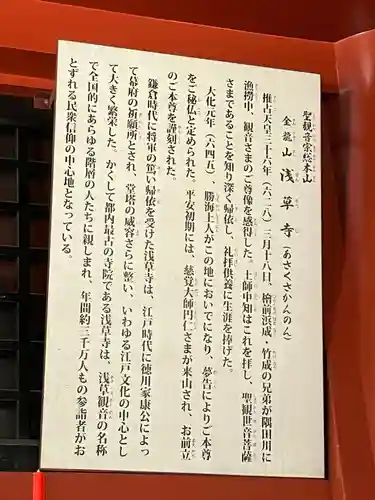 聖観音宗総本山
金龍山 浅草寺（あさくさかんのん）
推古天皇三十六年（六二八）三月十八日、檜前浜成、竹成の兄弟が隅田川に
漁撈中、観音さまのご尊像を感得した。土師中知はこれを拝し、聖観世音菩薩
さまであることを知り深く帰依し、礼拝供養に生涯を捧げた。
大化元年（六四五）、勝海上人がこの地においでになり、夢告によりご本尊
をご秘仏と定められた。平安初期には、慈覚大師円仁さまが来山され、お前立
のご本尊を謹刻された。
鎌倉時代に将軍の篤い帰依を受けた浅草寺は、江戸時代に徳川家康公によっ
て幕府の祈願所とされ、堂塔の威容さらに整い、いわゆる江戸文化の中心とし
て大きく繁栄した。かくして都内最古の寺院である浅草寺は、浅草観音の名称
で全国的にあらゆる階層の人たちに親しまれ、年間約三千万人もの参詣者がお
とずれる民衆信仰の中心地となっている。